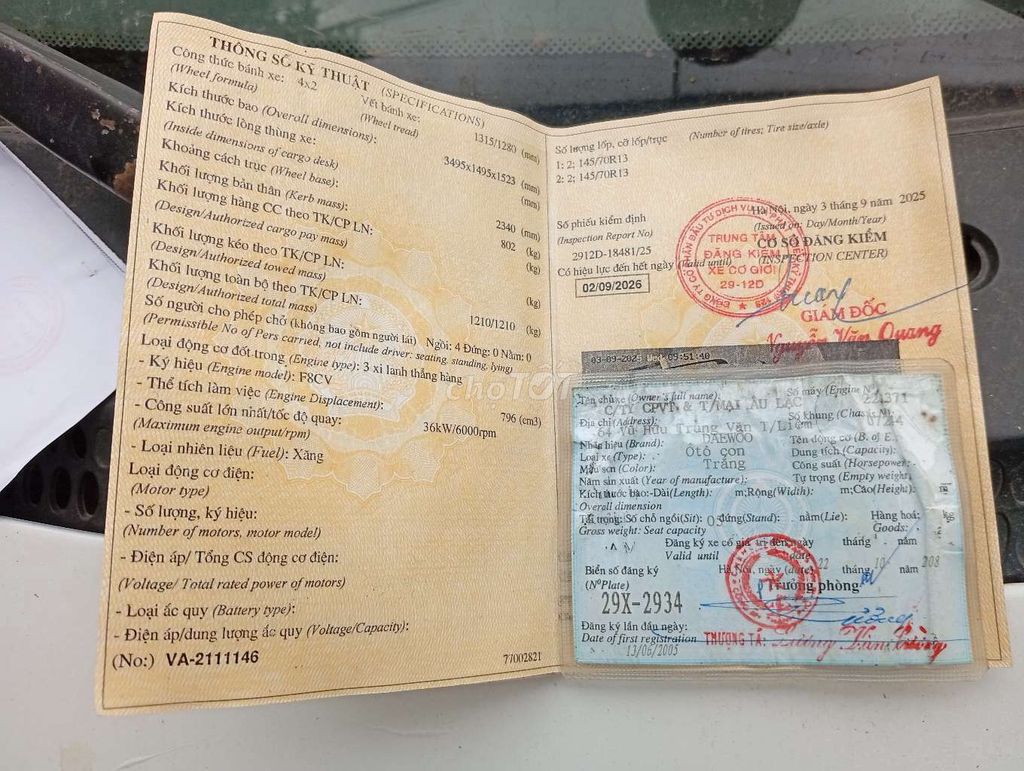 THÔNG SỐ KỸ THUẬT (SPECIFICATIONS)
Công thức bánh xe: 4x2 Vết bánh xe: 1315/1280 (mm)
(Wheel formula) (Wheel tread)
Kích thước bao (Overall dimensions): 3495x1495x1523 (mm)
Kích thước lòng thùng xe: (mm)
(Inside dimensions of cargo desk)
Khoảng cách trục (Wheel base): 2340 (mm)
Khối lượng bản thân (Kerb mass): 802 (kg)
Khối lượng hàng CC theo TK/CP LN: (kg)
(Design/Authorized cargo pay mass)
Khối lượng kéo theo TK/CP LN: (kg)
(Design/Authorized towed mass)
Khối lượng toàn bộ theo TK/CP LN: 1210/1210 (kg)
(Design/Authorized total mass)
Số người cho phép chở (không bao gồm người lái) Ngồi: 4 Đứng: 0 Nằm: 0
(Permissible No of Pers carried, not include driver: seating, standing, lying)
Loại động cơ đốt trong (Engine type): 3 xi lanh thẳng hàng
- Ký hiệu (Engine model): F8CV
- Thể tích làm việc (Engine Displacement): 796 (cm3)
- Công suất lớn nhất/tốc độ quay: 36kW/6000rpm
(Maximum engine output/rpm)
- Loại nhiên liệu (Fuel): Xăng
Loại động cơ điện:
(Motor type)
- Số lượng, ký hiệu:
(Number of motors, motor model)
- Điện áp/ Tổng CS động cơ điện:
(Voltage/ Total rated power of motors)
- Loại ắc quy (Battery type):
- Điện áp/dung lượng ắc quy (Voltage/Capacity):
(No:) VA-2111146
77002821
Số lượng lốp, cỡ lốp/trục (Number of tires; Tire size/axle)
1: 2; 145/70R13
2: 2; 145/70R13
Số phiếu kiểm định
(Inspection Report No)
2912D-18481/25
Có hiệu lực đến hết ngày (Valid until)
02/09/2026
Hà Nội, ngày 3 tháng 9 năm 2025
(Issued on: Day/Month/Year)
CƠ SỞ ĐĂNG KIỂM
(INSPECTION CENTER)
TRUNG TÂM
ĐĂNG KIỂM
XE CƠ GIỚI
29-12D
GIÁM ĐỐC
Nguyễn Văn Quang
03-09-2025 Wed 09:51:40
choTỐT
Tên chủ xe (Owner's full name): Số máy (Engine N
C/TY CPVT & T/MẠI ÂU LẠC 221371
Địa chỉ (Address): Số khung (Chassis N):
64 Vũ Hữu Trung Văn T/Liêm
Nhãn hiệu (Brand): DAEWOO Tên động cơ (B. of E
Loại xe (Type): Ôtô con Dung tích (Capacity):
Màu sơn (Color): Trắng Công suất (Horsepower):
Năm sản xuất (Year of manufacture): Tự trọng (Empty weight)
Kích thước bao: Dài(Length): m;Rộng(Width): m;Cao(Height):
Overall dimension
Tải trọng: Số chỗ ngồi(Sit): 05 đứng(Stand): nằm(Lie): Hàng hoá: kg
Gross weight: Seat capacity Goods:
Đăng ký xe có giá trị đến ngày tháng năm
Valid until date
Biển số đăng ký Hà Nội, ngày (date) 22 tháng 10 năm
(NºPlate) Trưởng phòng
29X-2934
Đăng ký lần đầu ngày:
Date of first registration THƯỢNG TÁ:
13/06/2005